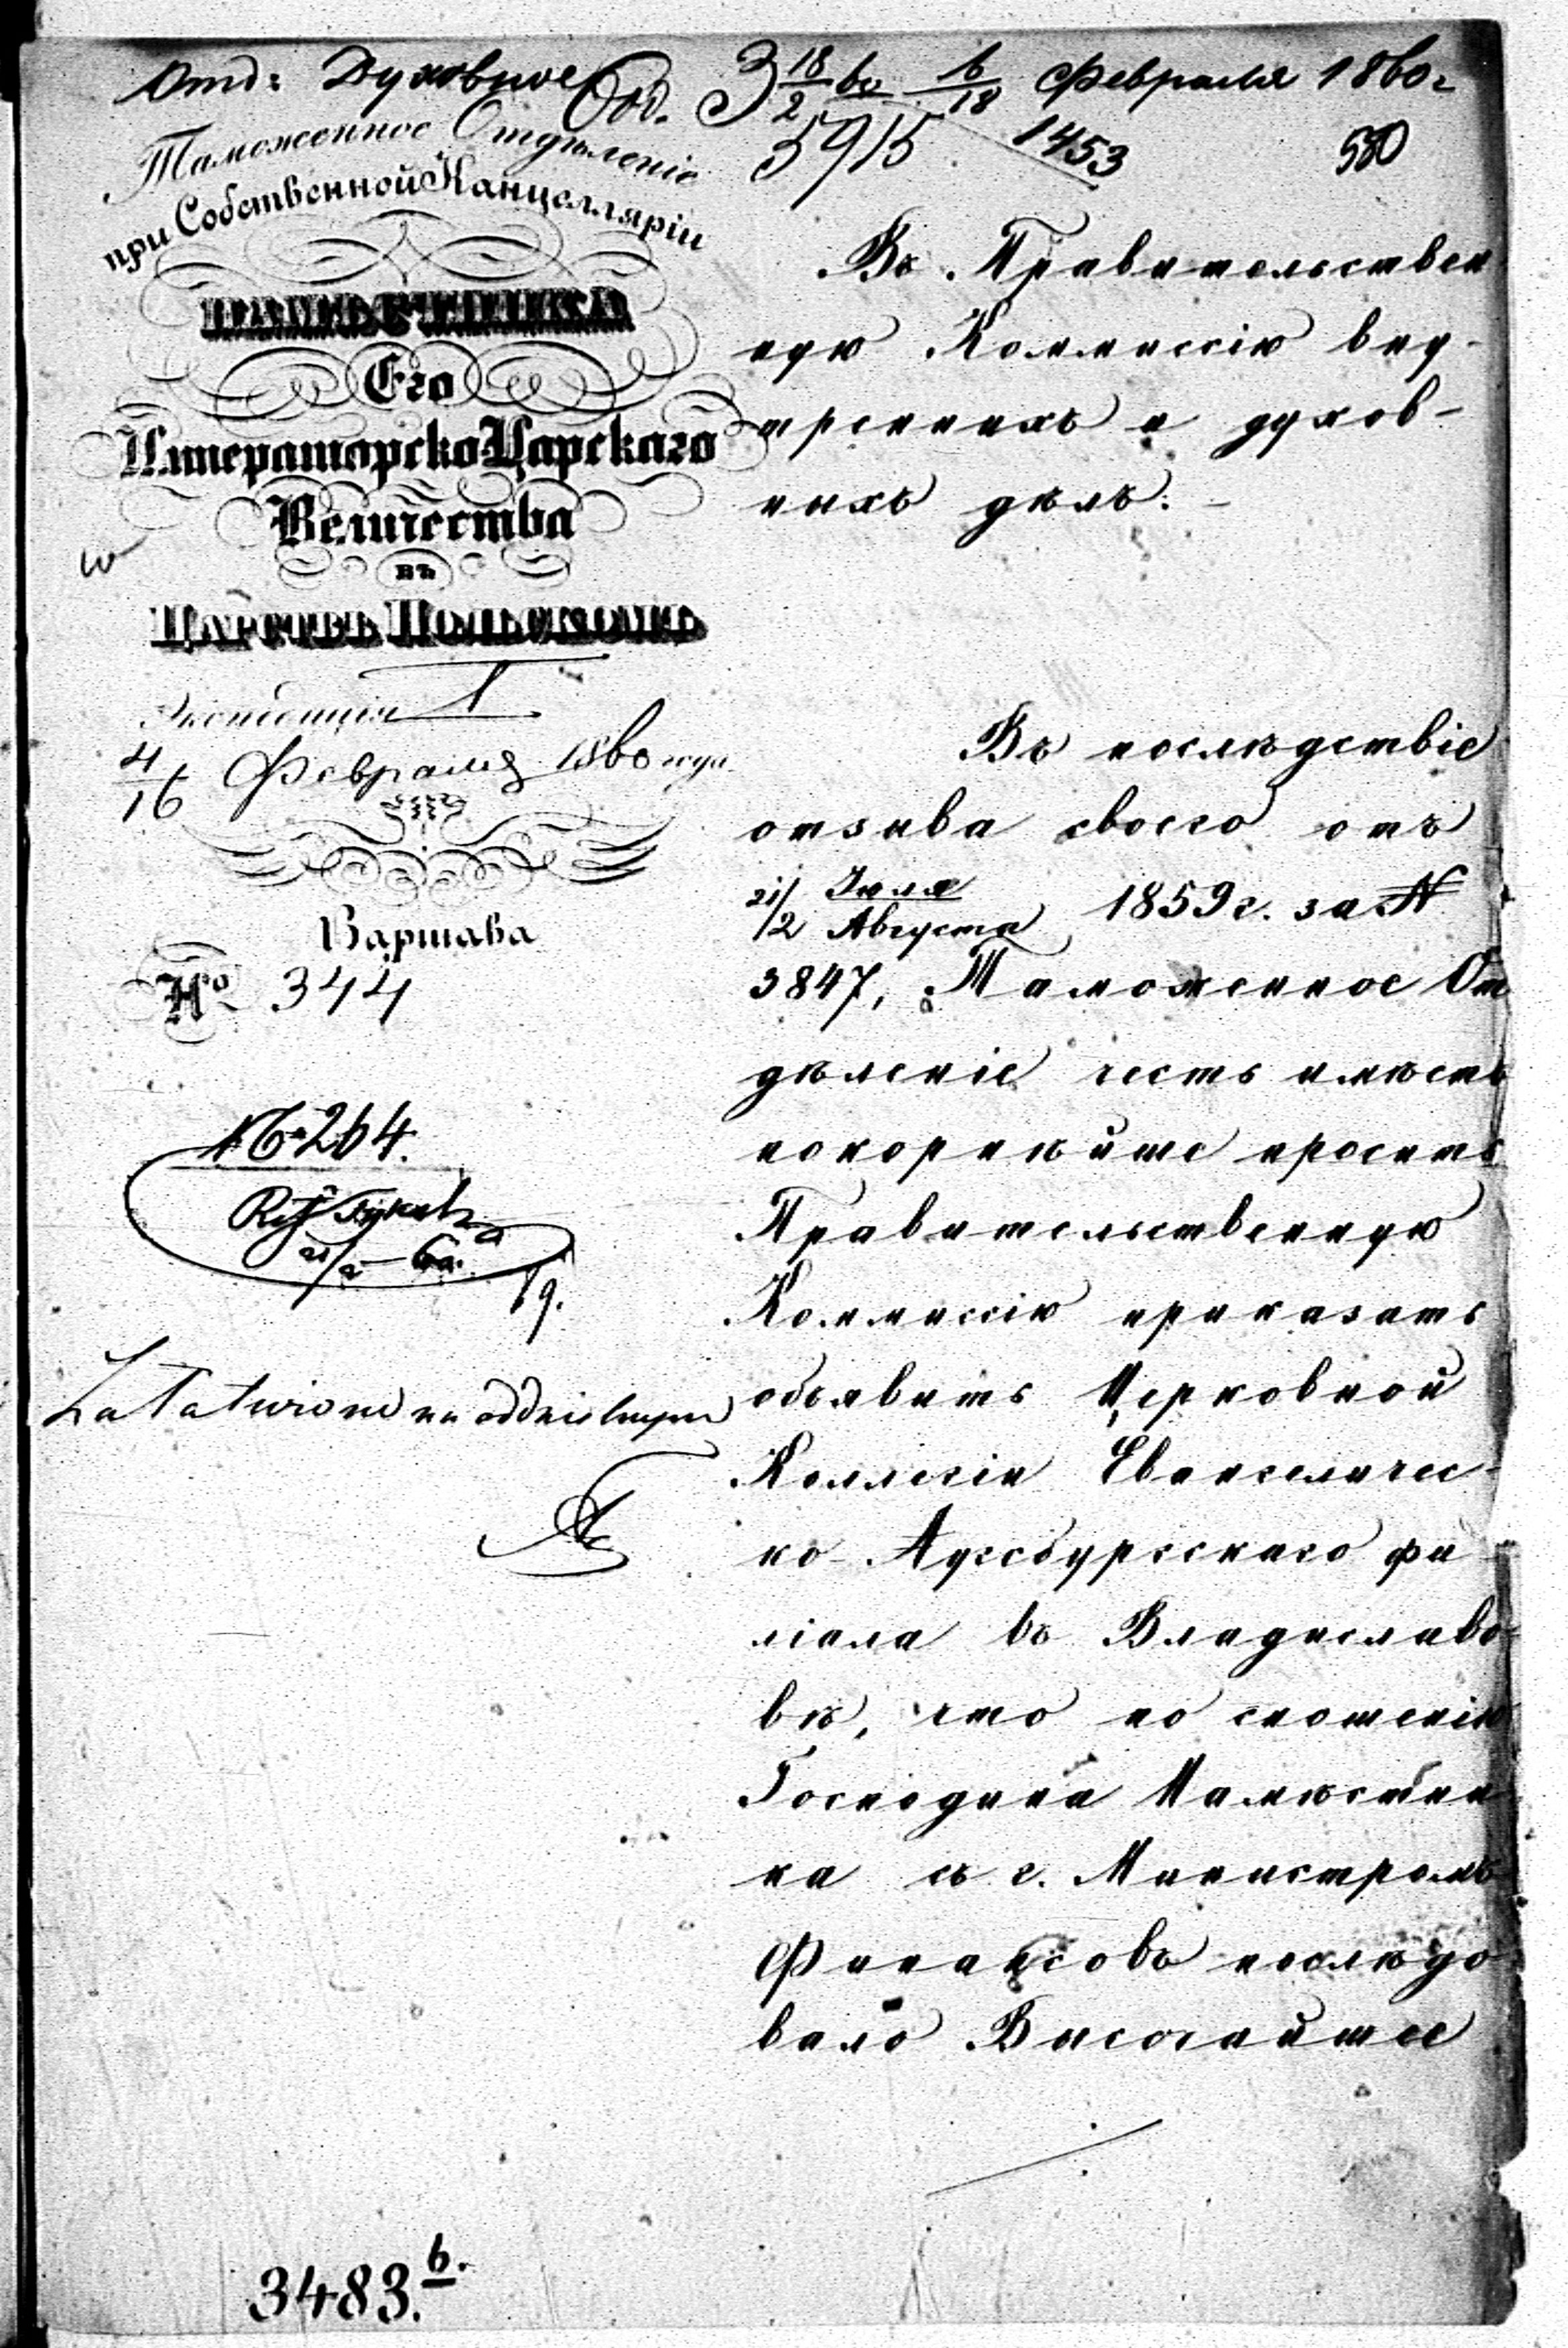 Отд: Духовное
З 18/2 60 6/18 Февраля 1860г
5915 1453 580
Таможенное Отдѣленіе
при Собственной Канцелляріи
НАМѢСТНИКА
Его
Императорско Царскаго
Величества
въ
ЦАРСТВѢ ПОЛЬСКОМЪ
Экспедиція I
4/16 Февраля 1860 года
Варшава
No 344
№ 264.
21/2 60.
19.
Załatwiono na oddzielnym
3483.b.
Въ Правительствен
ную Коммиссію вну-
треннихъ и духов-
ныхъ дѣлъ. –
Въ послѣдствіе
отзыва своего отъ
21/2 Іюля/Августа 1859 г. за N
3847, Таможенное От
дѣленіе честь имѣетъ
покорнѣйше просить
Правительственную
Коммиссію приказать
объявить Церковной
Коллегіи Евангеличес-
ко-Аугсбургскаго фи
ліала въ Владиславо-
вѣ, что по сношенію
Господина Намѣстни
ка съ г. Министромъ
Финансовъ послѣдо
вало Высочайшее